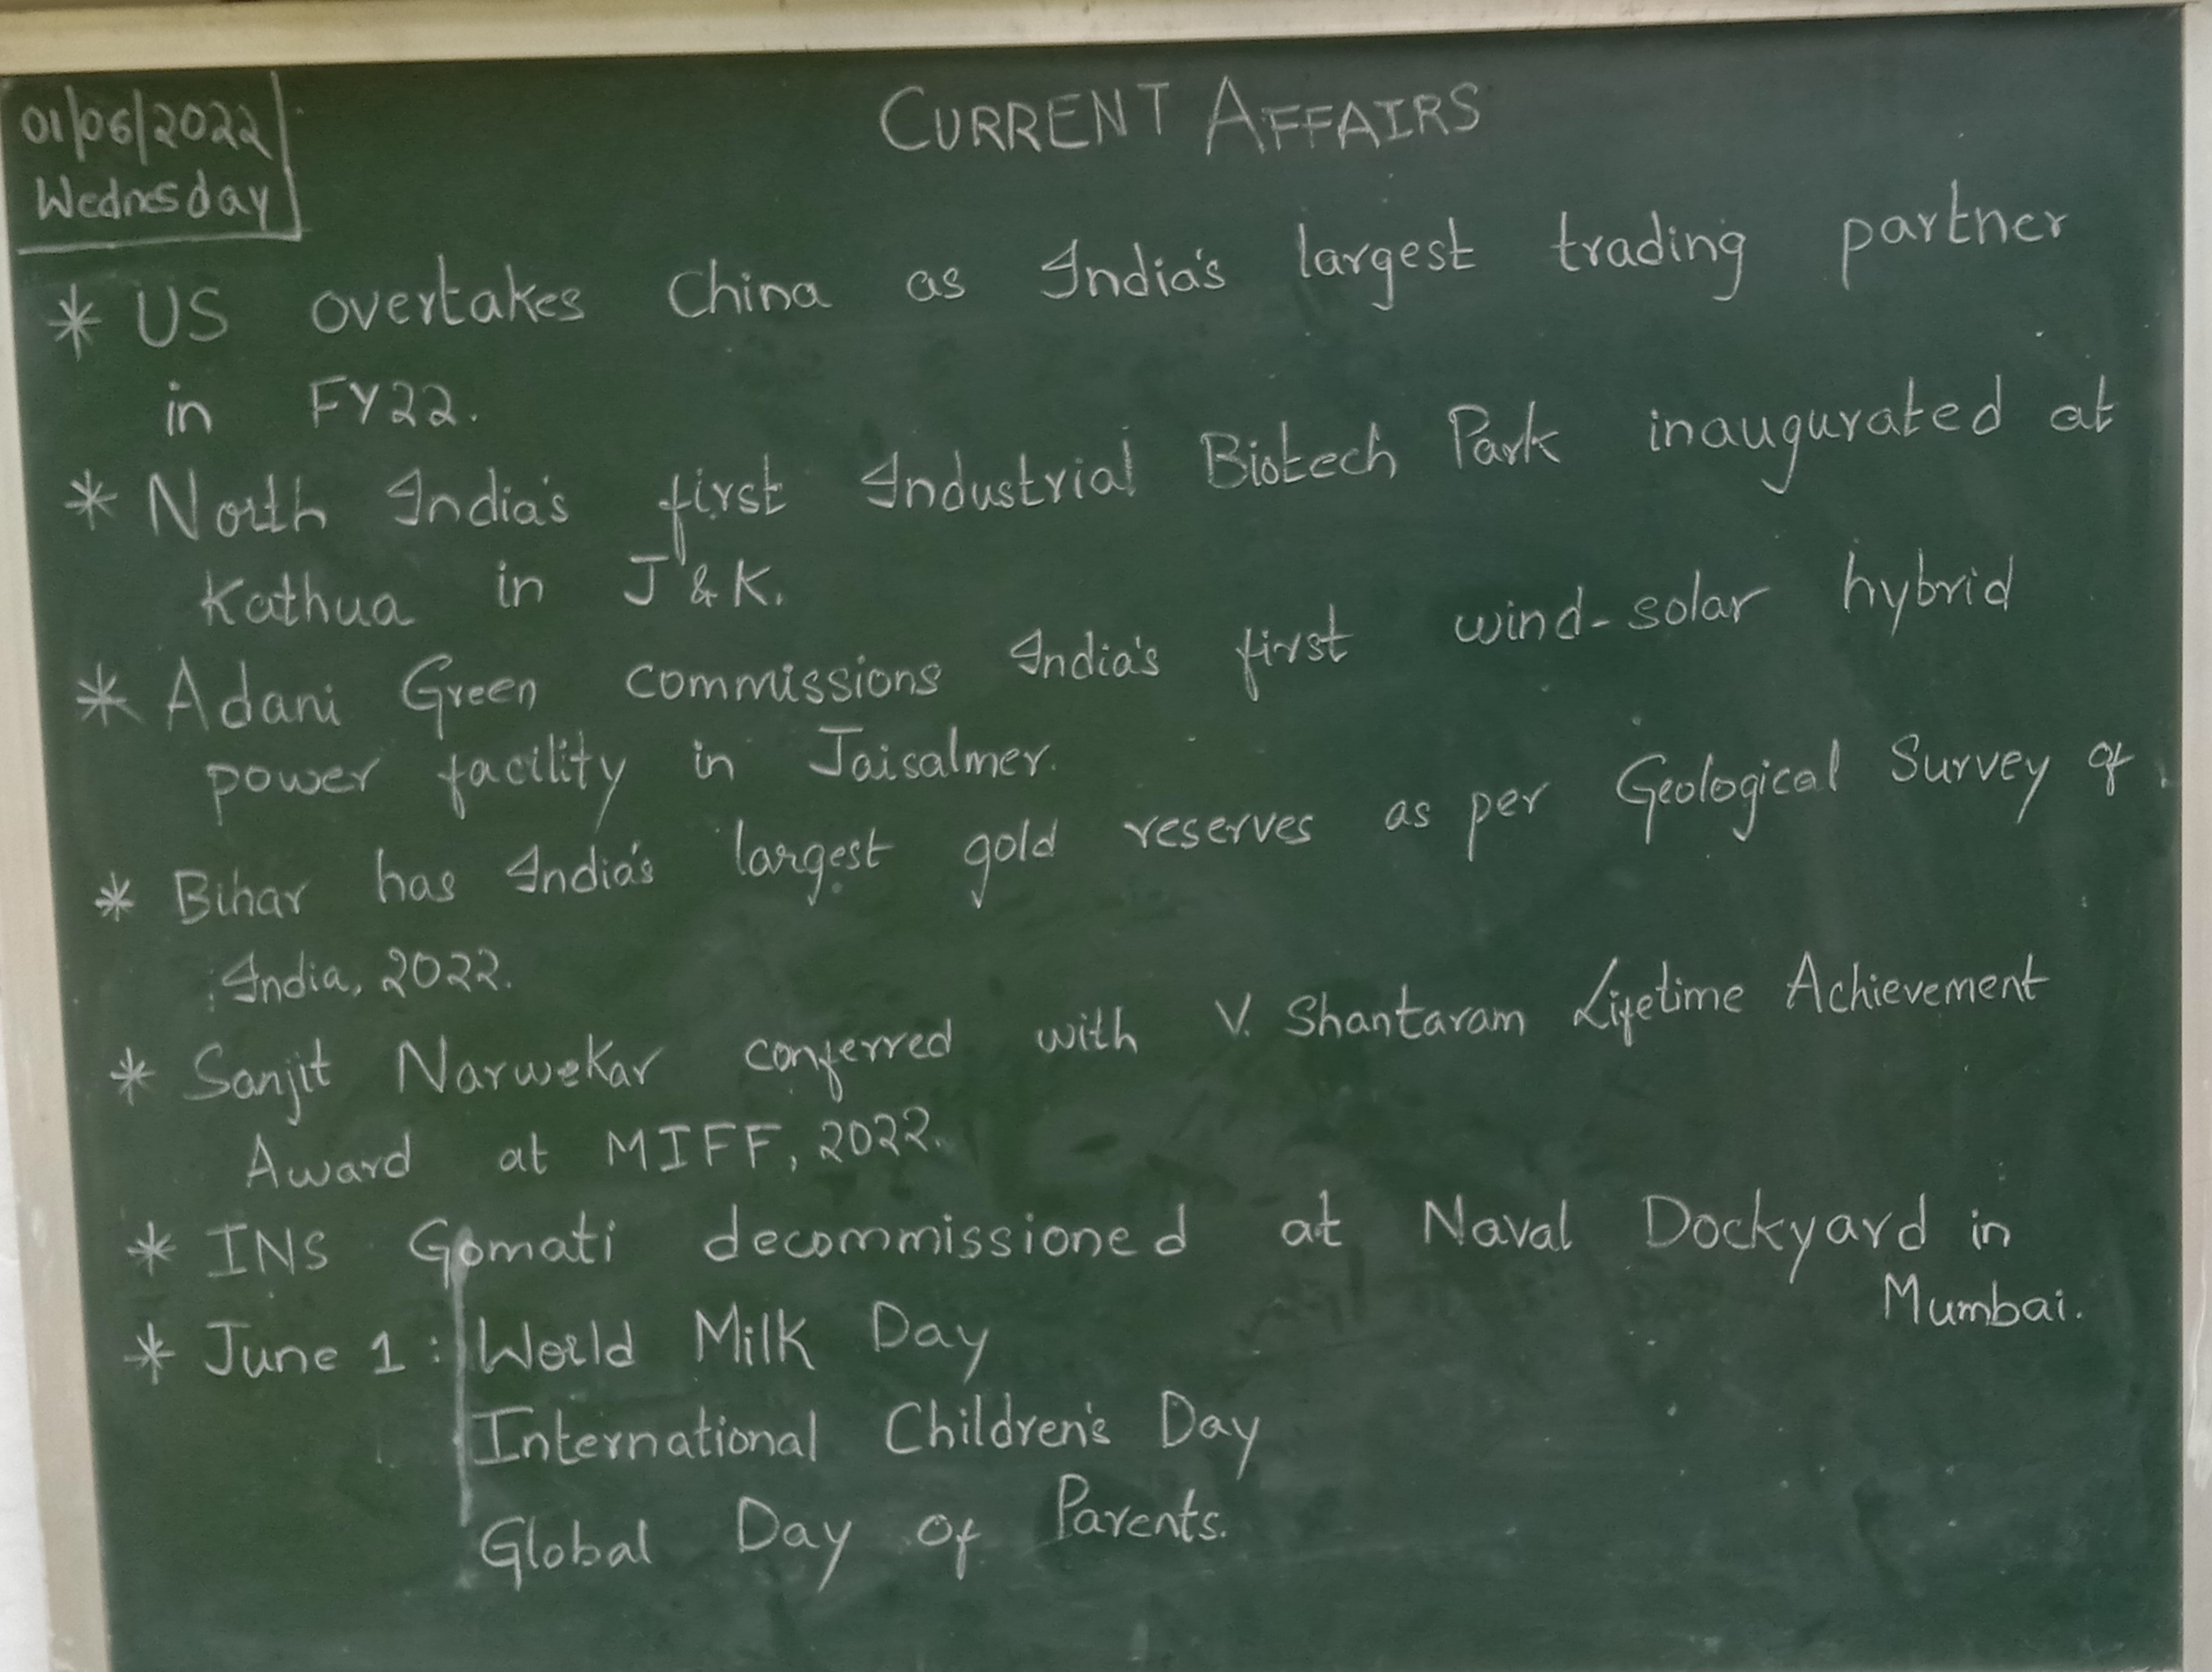 01/06/2022
Wednesday
CURRENT AFFAIRS
* US overtakes China as India's largest trading partner
in FY22.
* North India's first Industrial Biotech Park inaugurated at
Kathua in J&K.
* Adani Green commissions India's first wind-solar hybrid
power facility in Jaisalmer.
* Bihar has India's largest gold reserves as per Geological Survey of
India, 2022.
* Sanjit Narwekar conferred with V. Shantaram Lifetime Achievement
Award at MIFF, 2022.
* INS Gomati decommissioned at Naval Dockyard in
Mumbai.
* June 1 : World Milk Day
International Children's Day
Global Day of Parents.